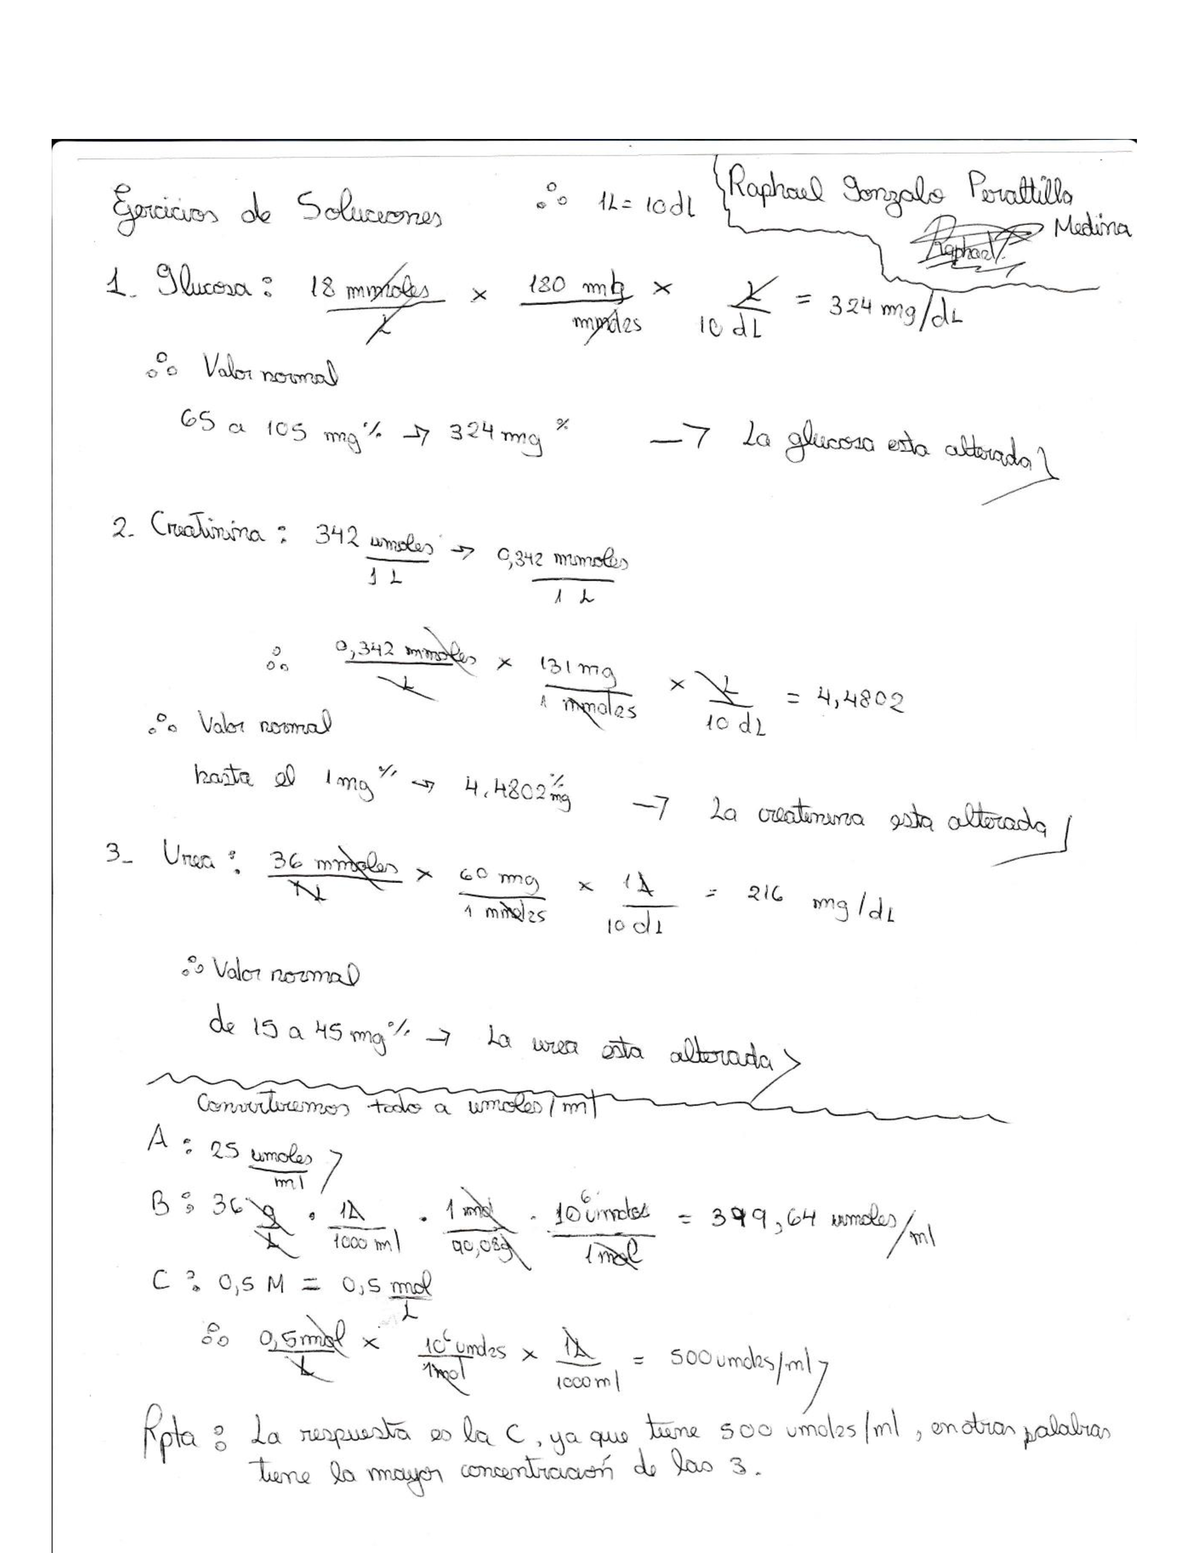 Ejercicios de Soluciones ∴ 1L = 10 dL
Raphael Gonzalo Peraltilla
Medina
Raphael
1- Glucosa : 18 mmoles / L × 180 mg / mmoles × L / 10 dL = 324 mg/dL
∴ Valor normal
65 a 105 mg % → 324 mg % → La glucosa esta alterada
2- Creatinina : 342 umoles / 1 L → 0,342 mmoles / 1 L
∴ 0,342 mmoles / L × 131 mg / 1 mmoles × L / 10 dL = 4,4802
∴ Valor normal
hasta el 1 mg % → 4,4802 mg % → La creatinina esta alterada
3- Urea : 36 mmoles / 1L × 60 mg / 1 mmoles × 1L / 10 dL = 216 mg/dL
∴ Valor normal
de 15 a 45 mg % → La urea esta alterada
Convertiremos todo a umoles/ml
A : 25 umoles / ml
B : 36 g / L · 1L / 1000 ml · 1 mol / 90,08g · 10⁶ umoles / 1 mol = 399,64 umoles/ml
C : 0,5 M = 0,5 mol / L
∴ 0,5 mol / L × 10⁶ umoles / 1 mol × 1L / 1000 ml = 500 umoles/ml
Rpta : La respuesta es la C, ya que tiene 500 umoles/ml, en otras palabras
tiene la mayor concentración de las 3.